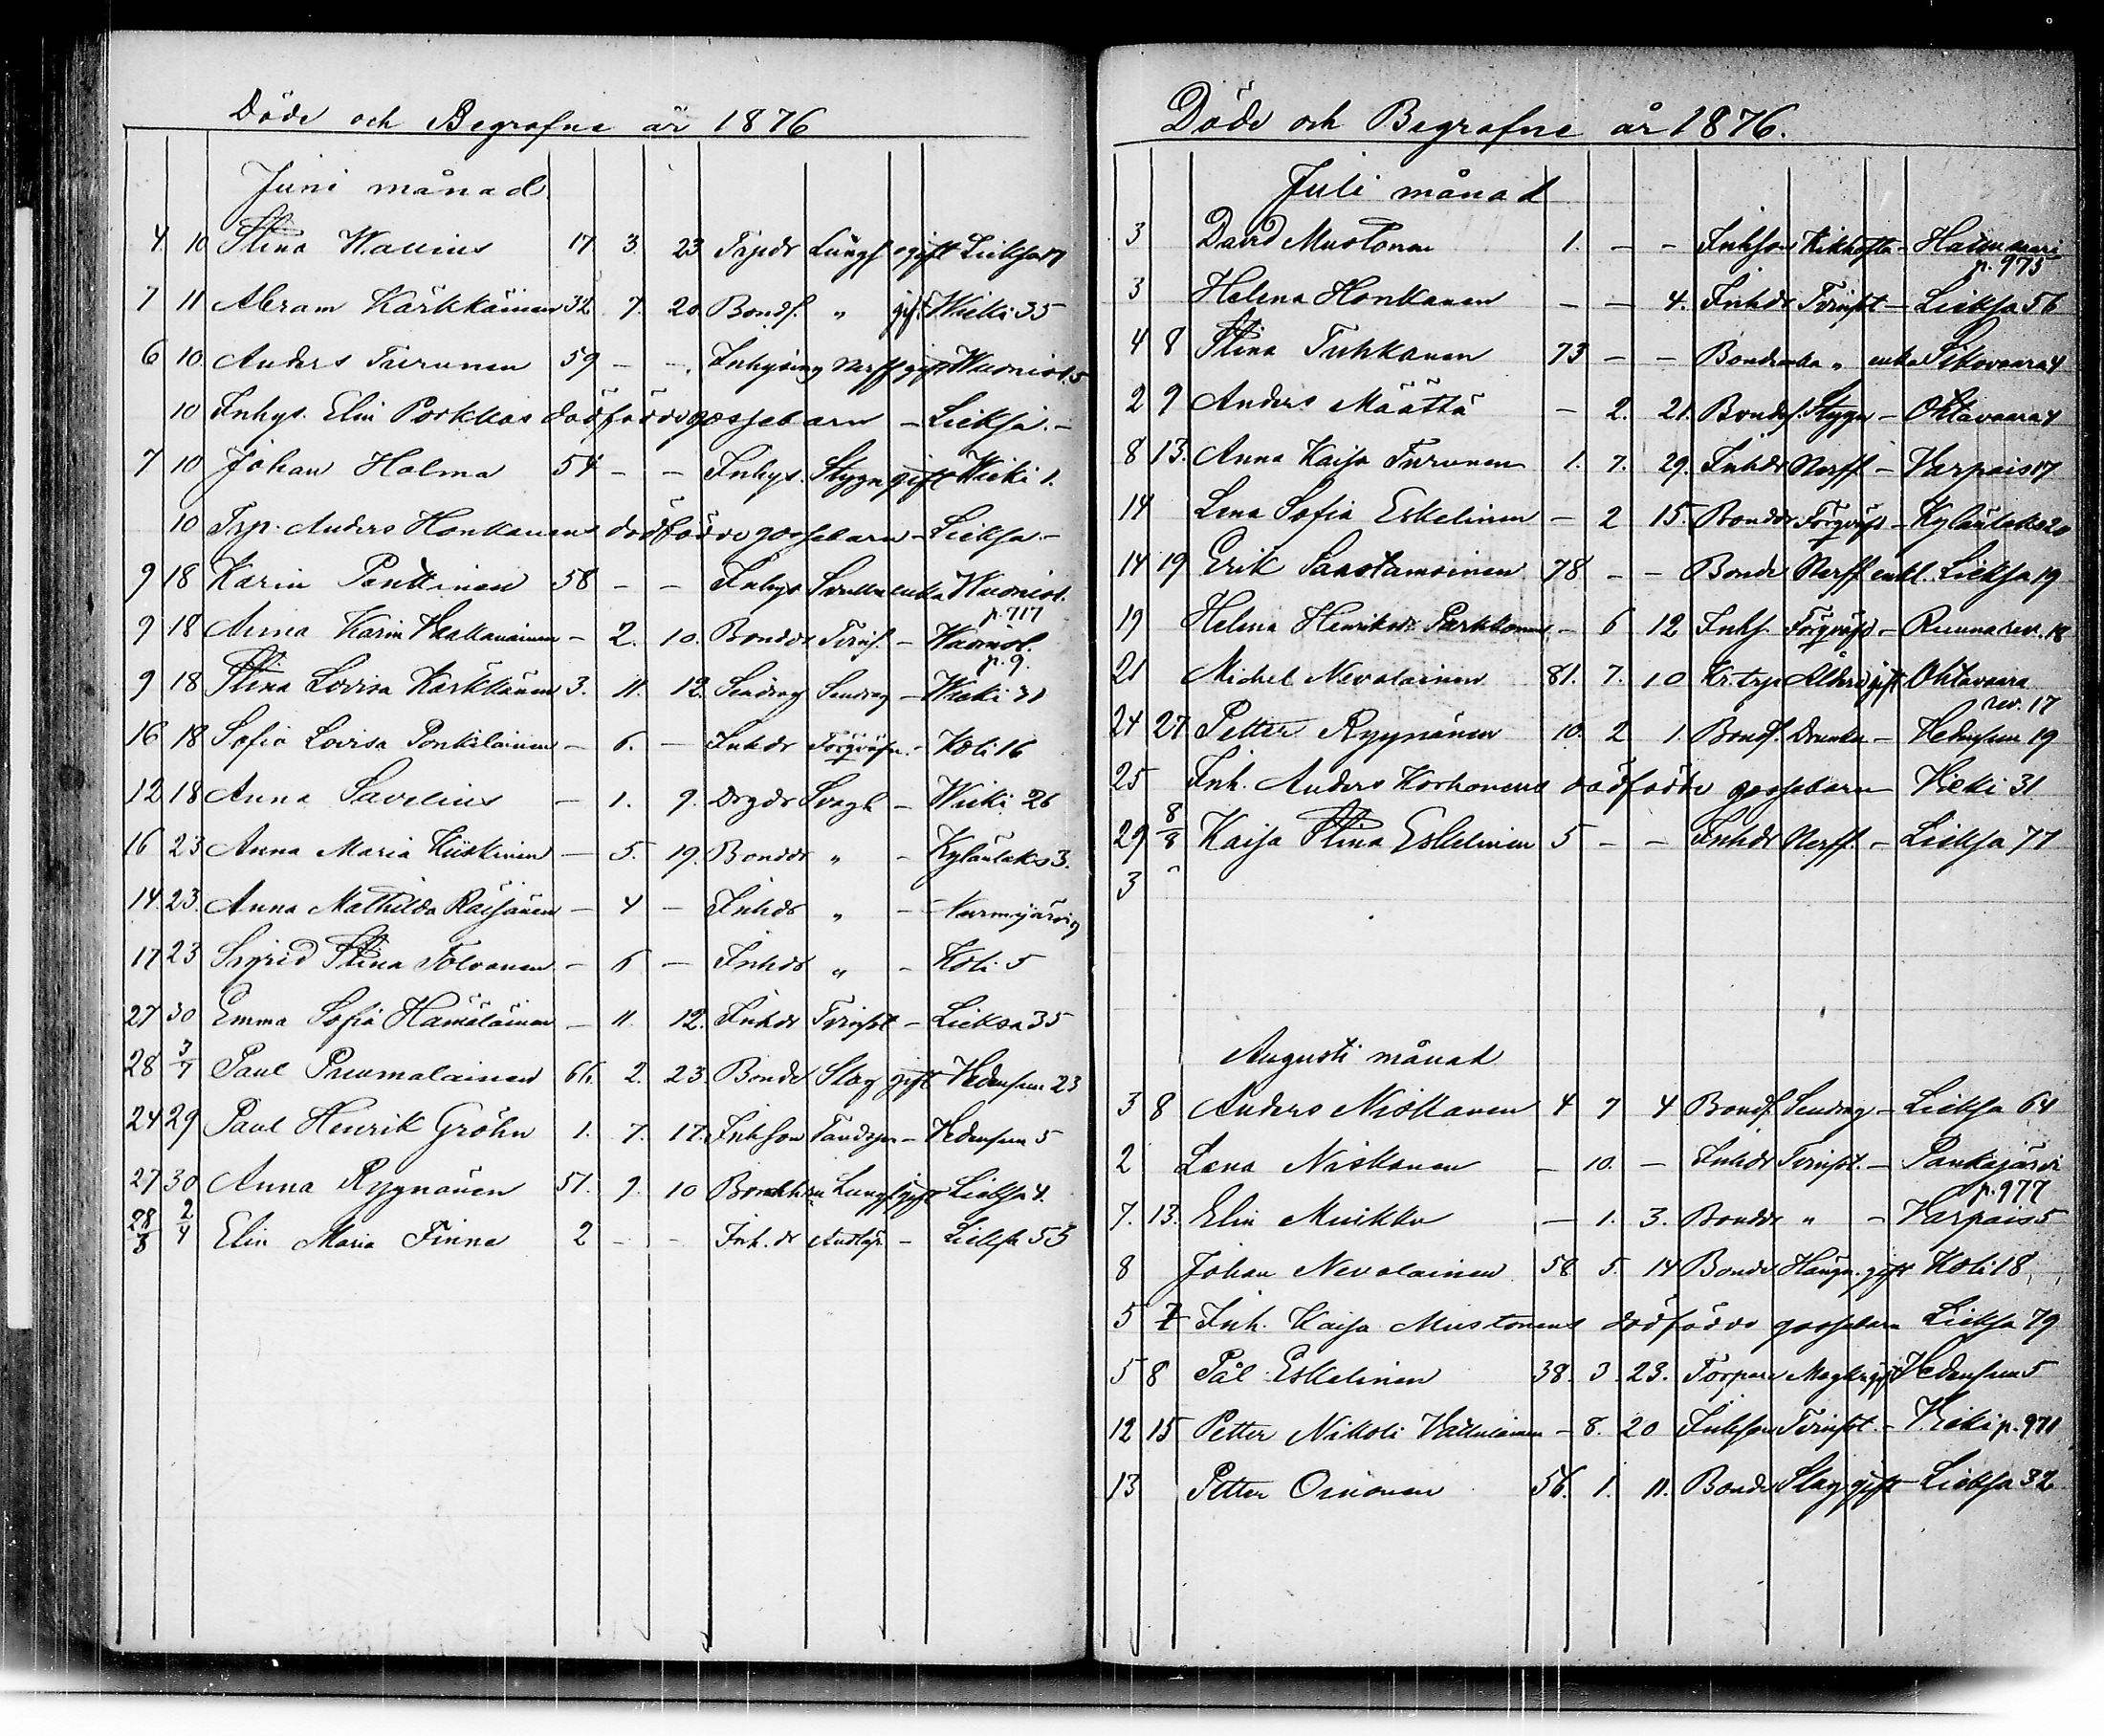 Döde och Begrafne år 1876
Juni månad
4. 10 Stina Wallius 17 3. 23 Trpdr Lungs. ogift Lieksa 17
7 11 Abram Kärkkäinen 32 7. 20. Bondes. " gift Wieki 35
6 10. Anders Turunen 59 - - Inhysing Nerff gift Wuonisl. 5
10 Inhys. Elin Porkkas dödfödde gossebarn - Lieksa. -
7 10 Johan Holma 54 - - Inhys. Stygn gift Wieki 1.
10 Trp. Anders Honkanens dödfödde gossebarn - Lieksa -
9 18 Karin Pankkinen 58 - - Inhys enka Wuonisl.
p. 717
9 18 Anna Karin - 2. 10. Bondedr Tvins. - Wuonisl.
p. 9.
9 18 Stina Lovisa Kärkkäinen 3. 11. 12. Lendrag - Wieki 31
16 18 Sofia Lovisa Ponkilainen - 6. - Inhdr Förgväfn. - Koli 16
12 18 Anna Savelius - 1. 9. Drgdr Svagh - Wieki 26
16 23 Anna Maria Kiiskinen - 5. 19. Bonddr " - Kylänlaks 3.
14. 23. Anna Mathilda Räsänen - 4 - Inhdr " - Nurmijärvi 9
17 23 Sigrid Stina Tolvanen - 6 - Inhdr " - Koli 5
27 30 Emma Sofia Hämäläinen - 11. 12. Inhdr Tvinsot - Lieksa 35
28 3/7 Paul Puumalainen 66. 2. 23. Bonde Slag gift Hedensum 23
24 29 Paul Henrik Gröhn 1. 7. 17. Inhson - Hedensum 5
27 30 Anna Ryynänen 51. 9. 10 Lungs gift Lieksa 4.
28/3 2/4 Elin Maria Finne 2 - - Inh. dr - Lieksa 53
Döde och Begrafne år 1876.
Juli månad
3 David Mustonen 1. - - Inhson Kikhosta -
p. 975
3 Helena Honkanen - - 4. Inhdr Tvinsot - Lieksa 56
4 8 Stina Tuhkanen 73 - - Bondenka " enka Sikovaara 4
2 9 Anders Määttä - 2. 21. Bondes. Stygn - Ohtavaara 4
8 13. Anna Kaisa Turunen 1. 7. 29. Inhdr Nerff. - Varpais 17
14 Lena Sofia Eskelinen - 2 15. Bonddr Förgväfn - Kylänlaks 20
14 19 Erik Saastamoinen 78 - - Bonde Nerff enkl. Lieksa 19
19 Helena Henriksdr Parkkonen - 6 12 Inhs. Förgväfn - Ruunarev. 18
21 Michel Nevalainen 81. 7. 10 Kr. trp Ålderd gift Ohtavaara
rev. 17
24 27 Petter Ryynänen 10. 2 1. Bonds. Drunkn - Hedensum 19
25 Inh. Anders Korhonens dödfödde gossebarn Vieki 31
29 8/8 Kaisa Stina Eskelinen 5 - - Inhdr Nerff. - Lieksa 77
3
Augusti månad
3 8 Anders Niskanen 4 7 4 Bonds. Lendrag - Lieksa 64
2 Lena Niskanen - 10. - Inhdr Tvinsot. - Pankajärvi
p. 977
7. 13. Elin Muikku - 1. 3. Bonddr " - Varpais 5
8 Johan Nevalainen 58 5. 14 Bonde Hängn. gift Koli 18
5 7 Inh. Kaisa Mustonens dödfödde gossebarn Lieksa 79
5 8 Pål Eskelinen 38. 3. 23. Torpare gift Hedensum 5
12 15 Petter Nikoli - 8. 20 Inhson Tvinsot. - Vieki p. 971
13 Petter Oinonen 56. 1. 11. Bonde Slag gift Lieksa 32